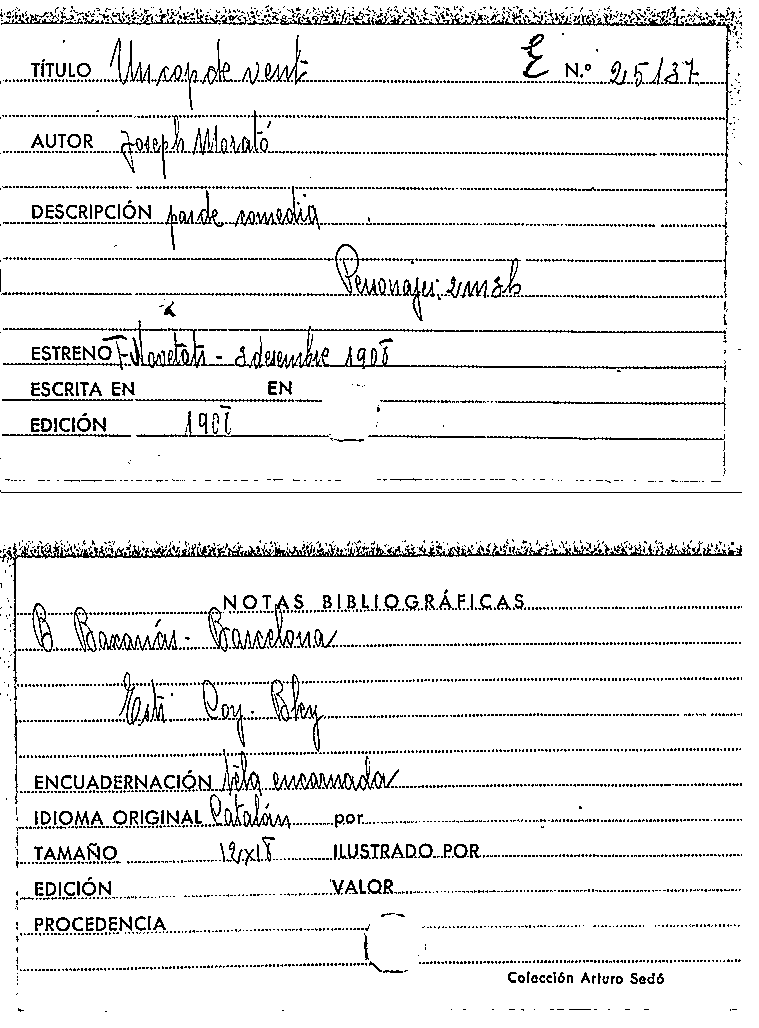 TÍTULO Un cop de vent E N.º 25137
AUTOR Joseph Morató
DESCRIPCIÓN pas de comedia
Personajes: 2m3h
ESTRENO T. Novetats - 3 desembre 1908
ESCRITA EN EN
EDICIÓN 1908
NOTAS BIBLIOGRÁFICAS
B Baxarias - Barcelona
ENCUADERNACIÓN tela encarnada
IDIOMA ORIGINAL Catalán por
TAMAÑO 12x18 ILUSTRADO POR
EDICIÓN VALOR
PROCEDENCIA
Colección Arturo Sedó